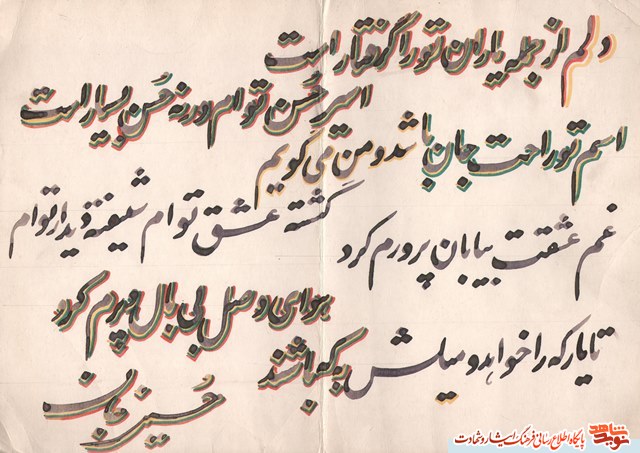 دلم از جمله یاران تو را گرفتار است
اسیر حُسن تو ام ورنه حُسن بسیار است
اسم تو راحت جان باشد و من می گویم
کشته عشق توام شیفته دیدار توام
غم عشقت بیابان پرورم کرد
هوای وصل بی بال و پرم کرد
تا یار که را خواهد و میلش به که باشد
حسین جان
نوید شاهد
پایگاه اطلاع رسانی فرهنگ ایثار و شهادت